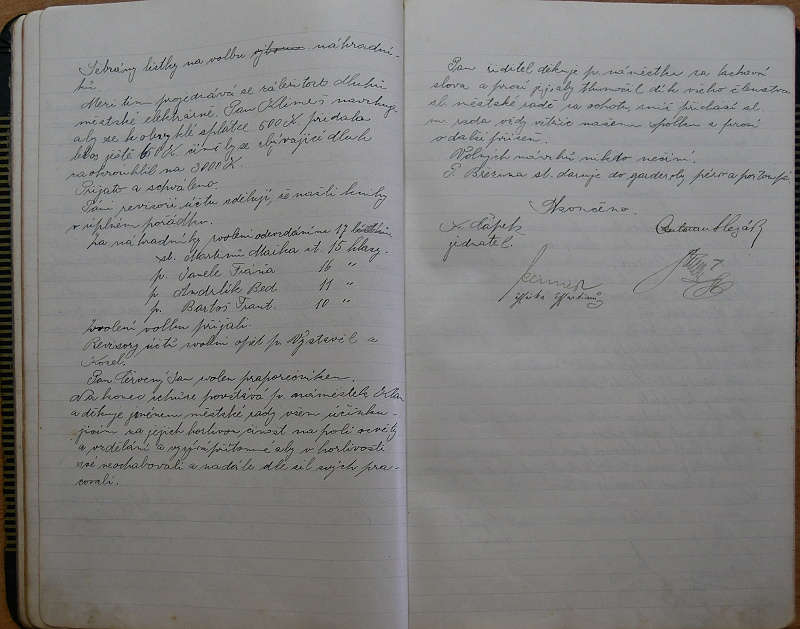 Sebrány lístky na volbu náhradní-
ků
Mezi tím projednává se záležitost dluhu
městské elektrárně. Pan Klimeš navrhuje
aby se k obvyklé splátce 600 K přidalo
ještě K čímž by se zbývající dluh
zaokrouhlil na 3000 K
Přijato a schváleno.
Páni revisoři účtů sdělují, že našli knihy
v úplném pořádku.
Za náhradníky zvoleni odevzdanými 17 lístky
sl. Martinů Maika st. 15 hlasy.
p. Janele Fráňa 16 "
p. Andrlík Bed. 11 "
p. Bartoš Frant. 10 "
Zvolení volbu přijali.
Revisory účtů zvoleni opět p. Vystavěl a
Kosel.
Pan Červený Jan zvolen praporečníkem.
Na konec schůze povstává p. náměstek
a děkuje jménem městské rady všem účinku-
jícím za jejich horlivou činost na poli osvěty
a vzdělání a vyzývá přítomné aby v horlivosti
své neochabovali a nadále dle sil svých pra-
covali.
Pan ředitel děkuje p. náměstku za laskavá
slova a prosí jej aby tlumočil dík všeho členstva
sl. městské radě za ochotu
m. rada vždy vstříc našemu spolku a prosí
o další přízeň.
Volných návrhů nikdo nečiní.
P. Březina st. daruje do garderoby péro a
Skončeno.
K. Čápek
jednatel.